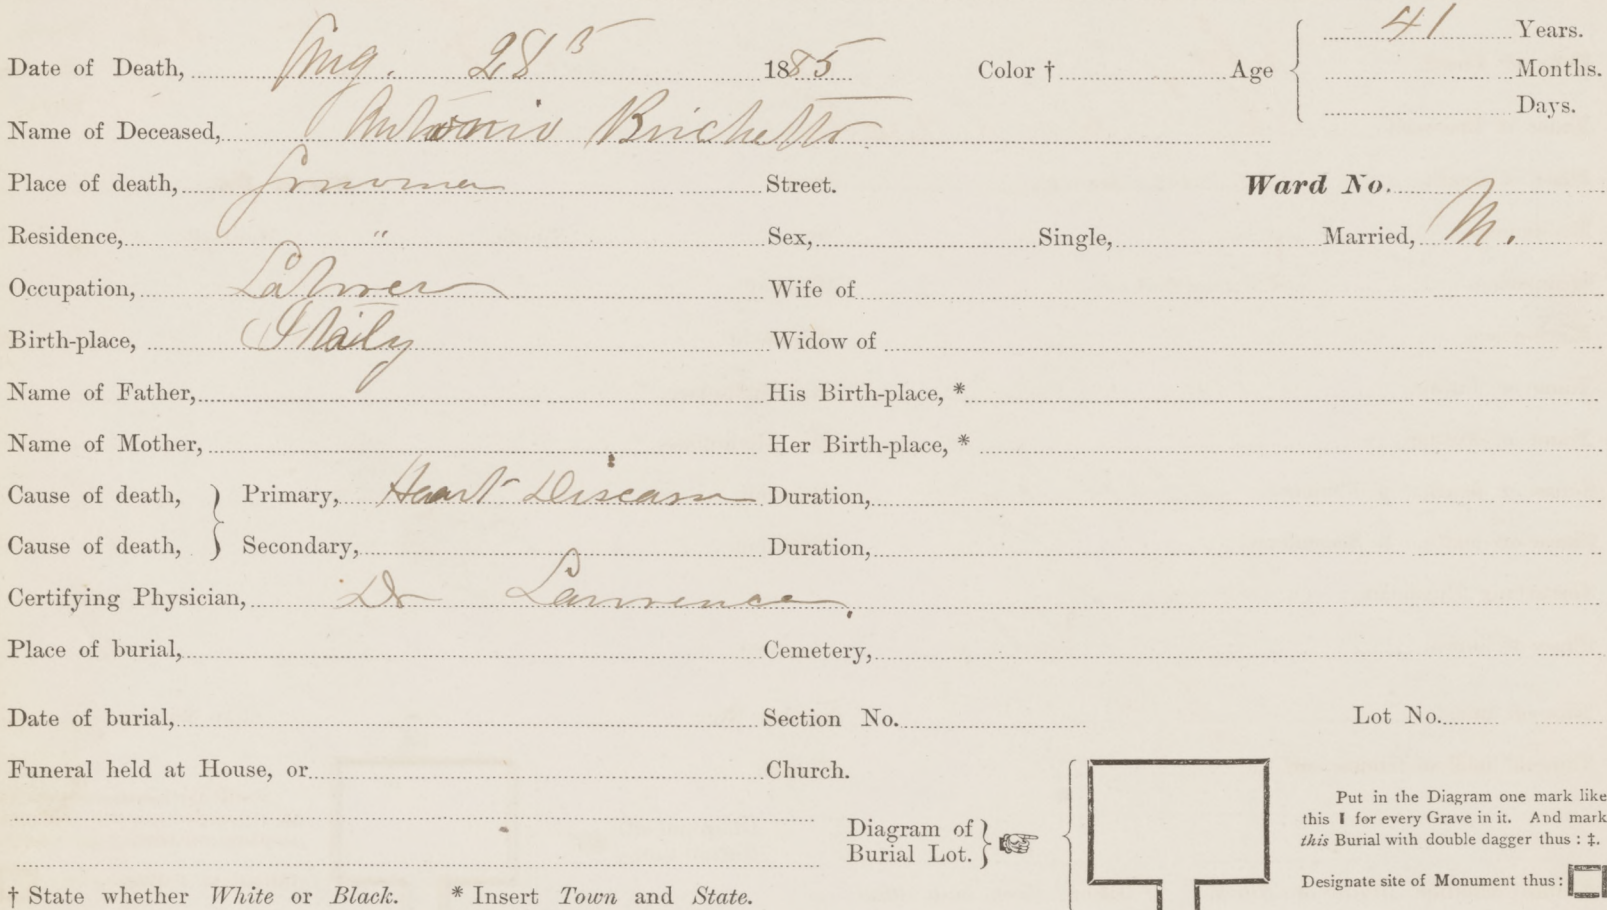 41 Years.
Date of Death, Aug. 28th 1885 Color † Age Months.
Days.
Name of Deceased, Antonio Brichetto
Place of death, Sonoma Street. Ward No.
Residence, " Sex, Single, Married, M.
Occupation, Labover
Wife of
Birth-place, Itaily Widow of
Name of Father, His Birth-place, *
Name of Mother, Her Birth-place, *
Cause of death, } Primary, Heart Disease Duration,
Cause of death, } Secondary, Duration,
Certifying Physician, Dr Lawrence.
Place of burial, Cemetery,
Date of burial, Section No. Lot No.
Funeral held at House, or Church.
Diagram of
Burial Lot. }
Put in the Diagram one mark like
this I for every Grave in it. And mark
this Burial with double dagger thus : ‡.
Designate site of Monument thus :
† State whether White or Black. * Insert Town and State.